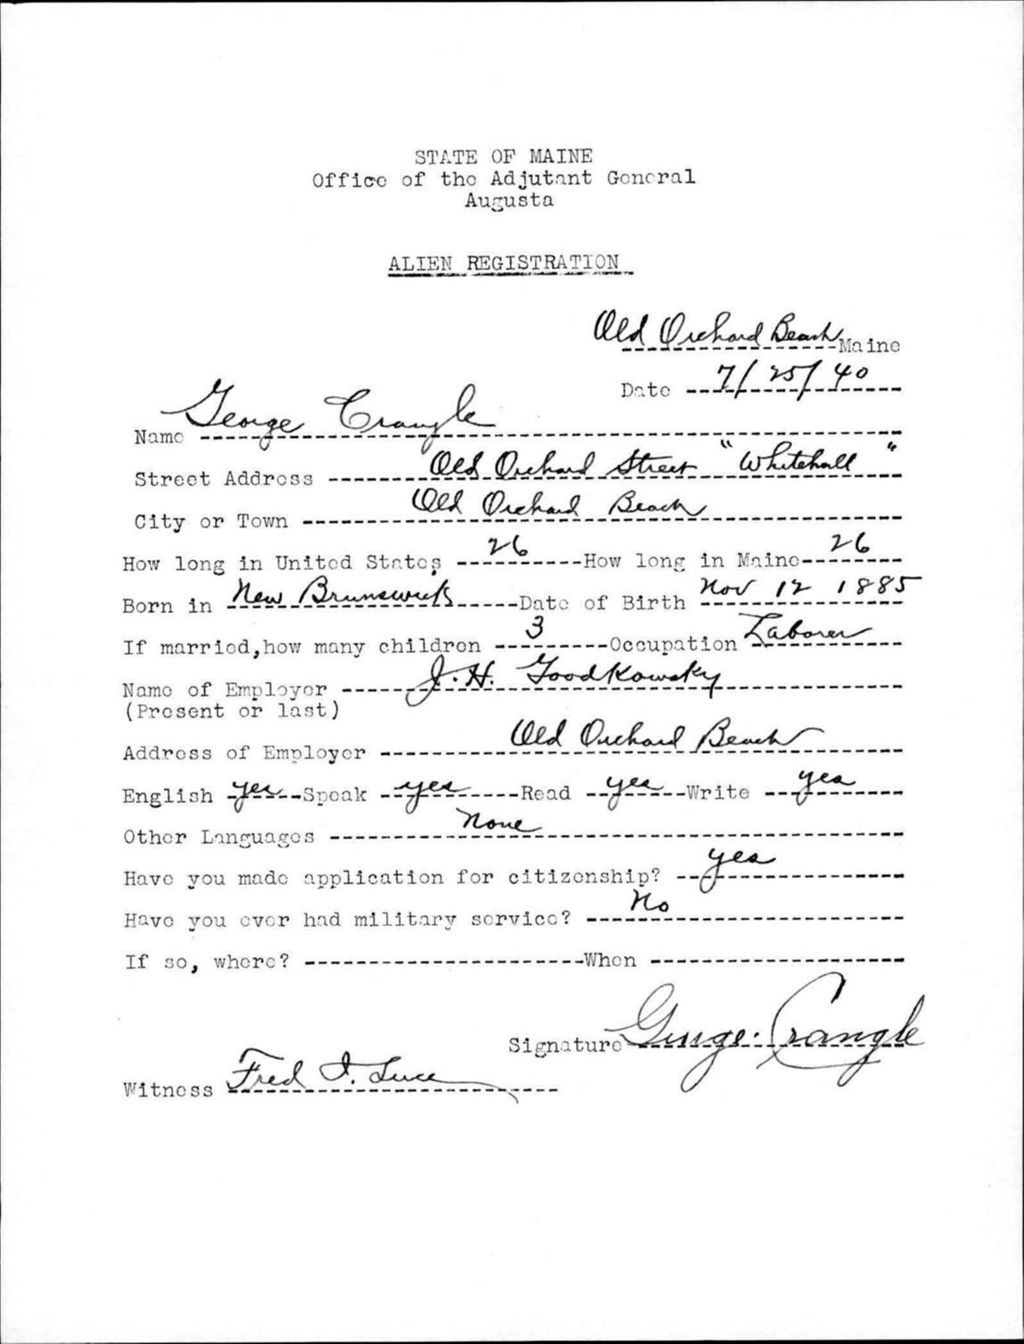 STATE OF MAINE
Office of the Adjutant General
Augusta
ALIEN REGISTRATION
Old Orchard Beach Maine
Date 7/25/40
Name George Crangle
Street Address Old Orchard Street "Whitehall"
City or Town Old Orchard Beach
How long in United States 26 How long in Maine 26
Born in New Brunswick Date of Birth Nov 12 1885
If married, how many children 3 Occupation Laborer
Name of Employer J. H. Goodkowsky
(Present or last)
Address of Employer Old Orchard Beach
English yes Speak yes Read yes Write yes
Other Languages None
Have you made application for citizenship? yes
Have you ever had military service? No
If so, where? When
Signature George Crangle
Witness Fred I. Luce